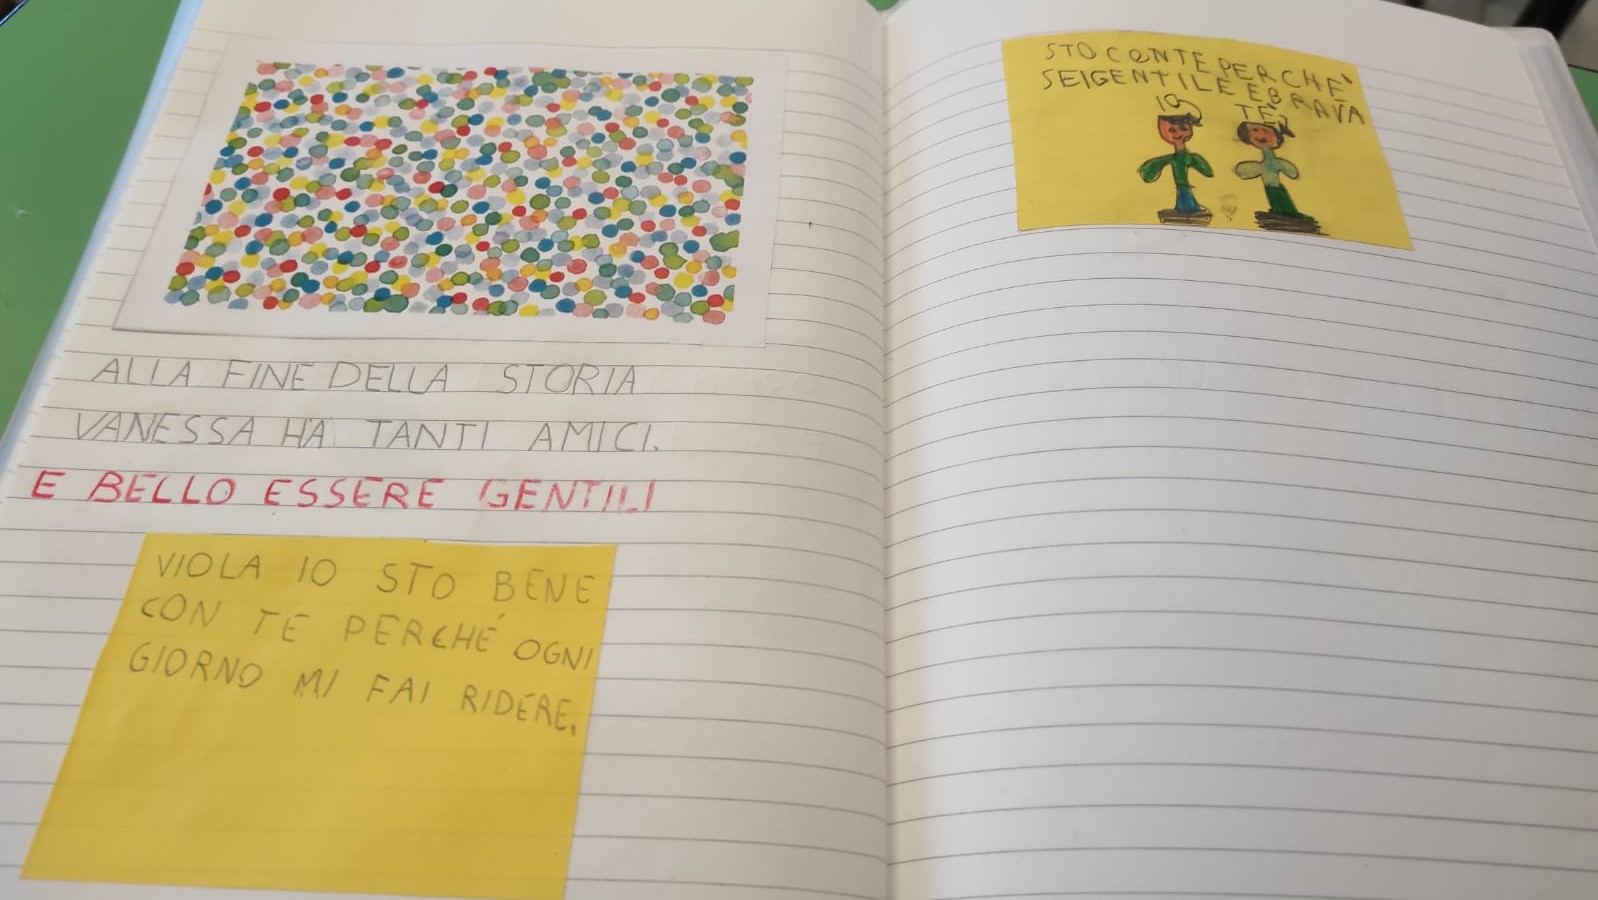 ALLA FINE DELLA STORIA
VANESSA HA TANTI AMICI.
E BELLO ESSERE GENTILI
VIOLA IO STO BENE
CON TE PERCHÉ OGNI
GIORNO MI FAI RIDERE.
STO CON TE PERCHÈ
SEI GENTILE E BRAVA
IO TE